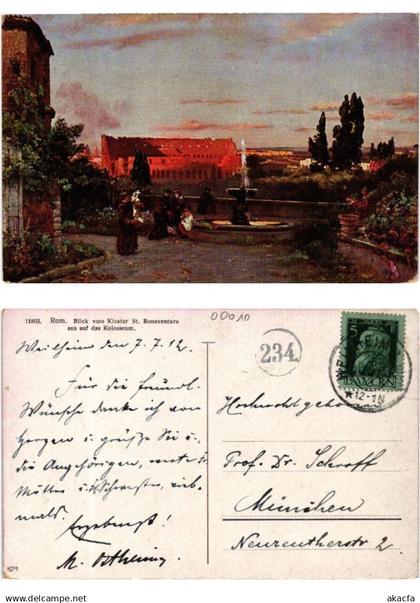 11803. Rom. Blick vom Kloster St. Bonaventura
aus auf das Kolosseum.
00010
234
5
BAYERN
WEILHEIM
*12-1N
Weilheim den 7.7.12.
Für die freundl.
Wünsche danke ich von
Herzen u. grüße Sie u.
die Angehörigen,
Mutter u. Schwester, viel-
mals.
Ergebenst!
M.
Hochwohlgeb.
Prof. Dr. Schroff
München
Neureutherstr 2.
HJM
www.delcampe.net
akacfa